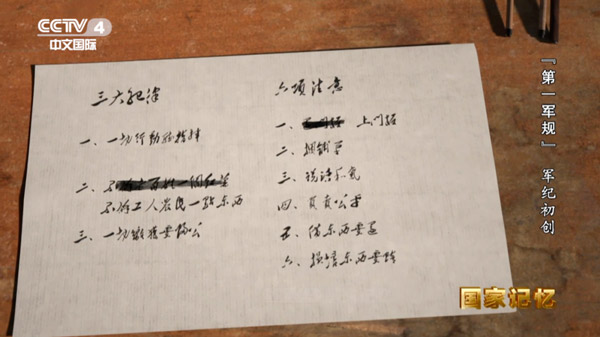 CCTV 4
中文国际
三大纪律
一、一切行动听指挥
二、不拿老百姓一个红薯
不拿工人农民一点东西
三、一切缴获要归公
六项注意
一、上门板
二、捆铺草
三、说话和气
四、买卖公平
五、借东西要还
六、损坏东西要赔
『第一军规』 军纪初创
国家记忆